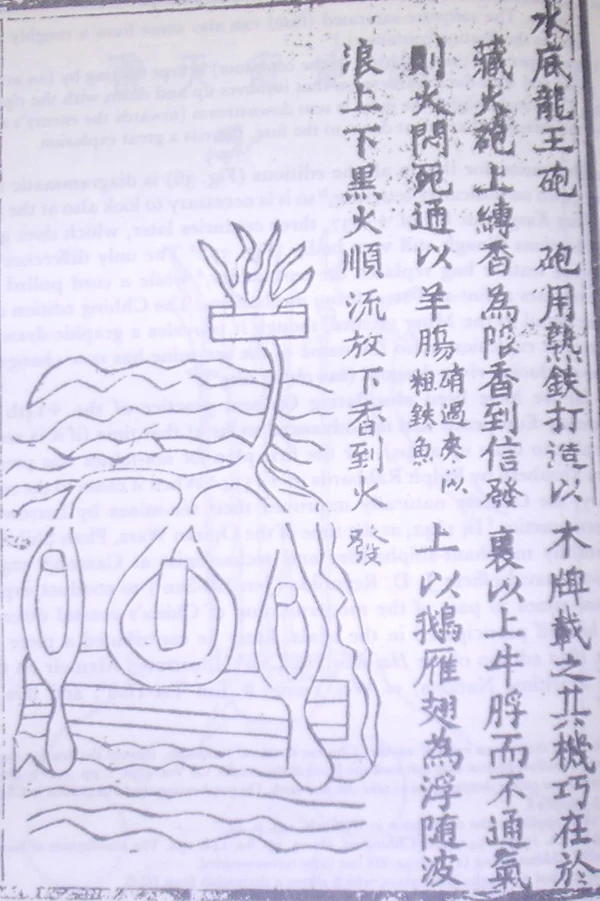 水底龍王砲　砲用熟鉄打造以　木牌載之其機巧在於
藏火砲上縛香為限香到信發　裹以上牛脬而不通氣
則火悶死通以羊腸　硝過夾以　粗鉄魚　上以鵝雁翅為浮隨波
浪上下黑火順流放下香到火發